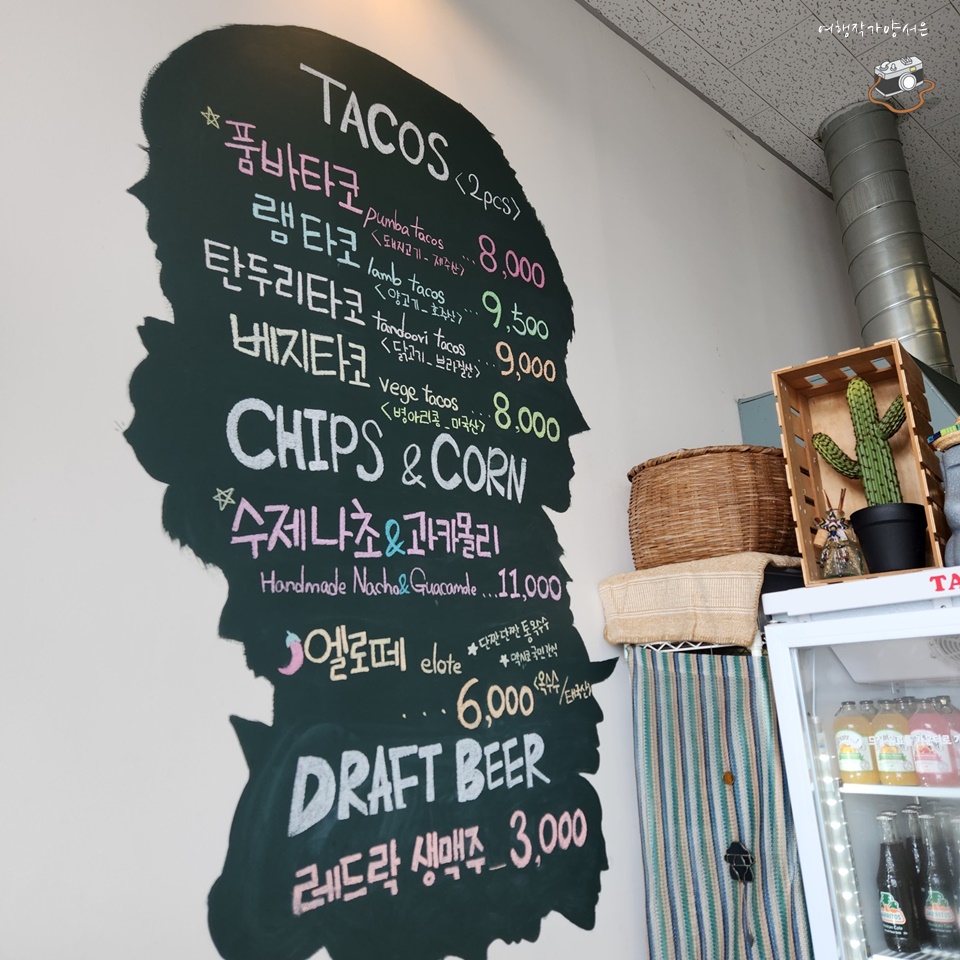 여행작가양서은
TACOS <2pcs>
품바타코 pumba tacos ... 8,000
<돼지고기_제주산>
램타코 lamb tacos 9,500
<양고기_호주산>
탄두리타코 tandoori tacos ... 9,000
<닭고기_브라질산>
베지타코 vege tacos ... 8,000
<병아리콩_미국산>
CHIPS & CORN
수제나초&과카몰리
Handmade Nacho&Guacamole ... 11,000
엘로떼 elote
★단짠단짠 통옥수수
★멕시코 국민간식
.... 6,000 <옥수수/태국산>
DRAFT BEER
레드락 생맥주_3,000
TA